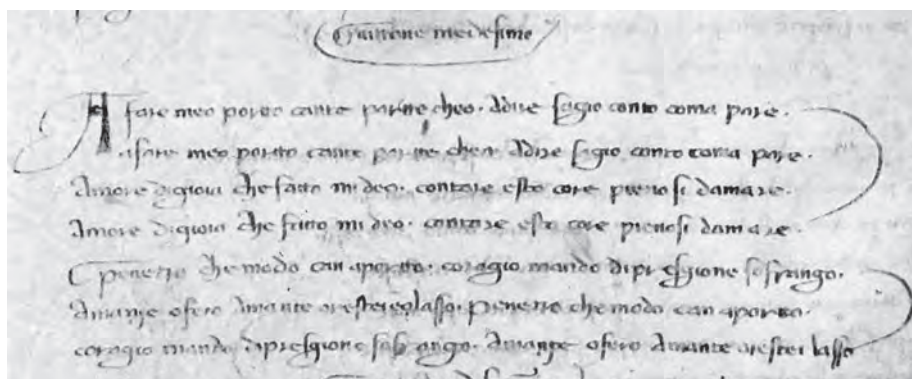 Guittone medesimo
A fare meo porto cante parteo cheo. Adire sagio conto coma pare.
afare meo porto cante parte cheo. Adire sagio conto coma pare.
Amore digioia che fatto mi deo. contare esto core pieno si damare.
Amore digioia che fatto mi deo. contare esto core pieno si damare.
Penetro che modo can aporto. coragio mando dipregione
Amante ofero Amante penetro che modo can aporto.
coragio mando dipregione Amante ofero Amante orestei lasso